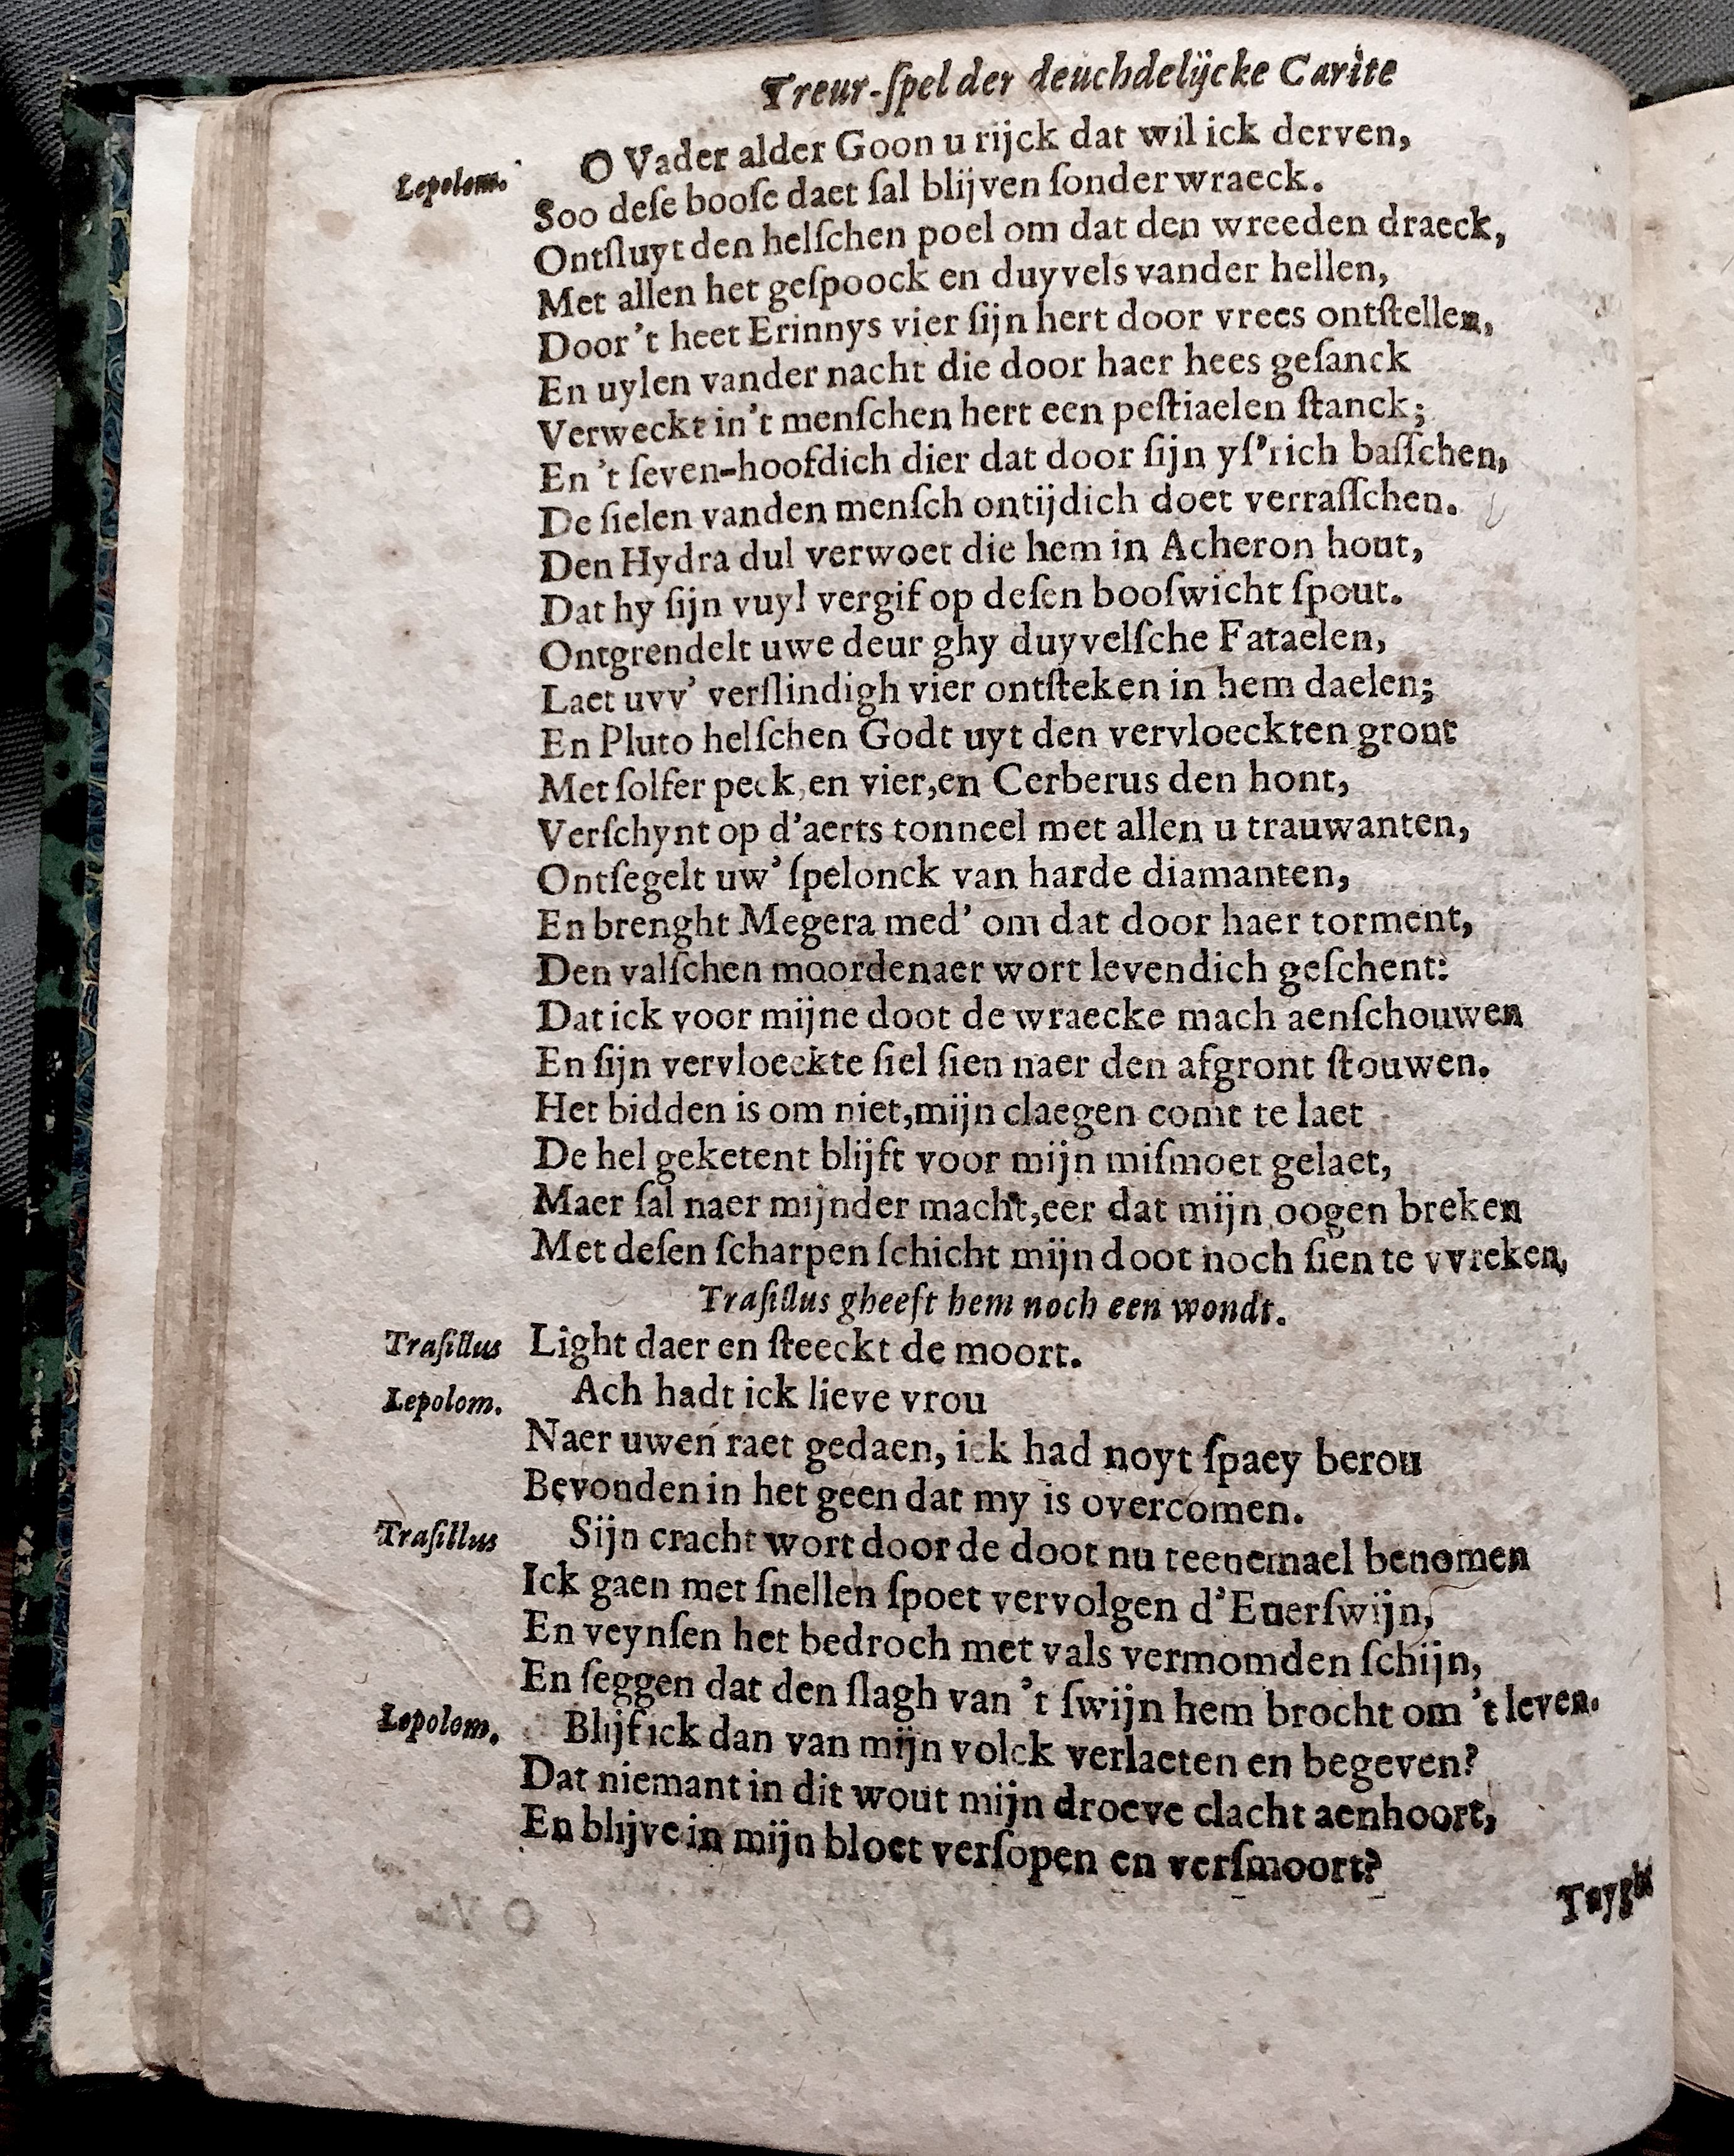 Treur-ſpel der deuchdelijcke Carite
Lepolom. O Vader alder Goon u rijck dat wil ick derven,
Soo deſe booſe daet ſal blijven ſonder wraeck.
Ontſluyt den helſchen poel om dat den wreeden draeck,
Met allen het geſpoock en duyvels vander hellen,
Door 't heet Erinnys vier ſijn hert door vrees ontſtellen,
En uylen vander nacht die door haer hees geſanck
Verweckt in't menſchen hert een peſtiaelen ſtanck;
En 't ſeven-hoofdich dier dat door ſijn yſ'rich baſſchen,
De ſielen vanden menſch ontijdich doet verraſſchen.
Den Hydra dul verwoet die hem in Acheron hout,
Dat hy ſijn vuyl vergif op deſen booſwicht ſpout.
Ontgrendelt uwe deur ghy duyvelſche Fataelen,
Laet uvv' verſlindigh vier ontſteken in hem daelen;
En Pluto helſchen Godt uyt den vervloeckten gront
Met ſolfer peck, en vier,en Cerberus den hont,
Verſchynt op d'aerts tonneel met allen u trauwanten,
Ontſegelt uw' ſpelonck van harde diamanten,
En brenght Megera med' om dat door haer torment,
Den valſchen moordenaer wort levendich geſchent:
Dat ick voor mijne doot de wraecke mach aenſchouwen
En ſijn vervloeckte ſiel ſien naer den afgront ſtouwen.
Het bidden is om niet,mijn claegen comt te laet
De hel geketent blijft voor mijn miſmoet gelaet,
Maer ſal naer mijnder macht,eer dat mijn oogen breken
Met deſen ſcharpen ſchicht mijn doot noch ſien te vvreken,
Traſillus gheeft hem noch een wondt.
Traſillus Light daer en ſteeckt de moort.
Lepolom. Ach hadt ick lieve vrou
Naer uwen raet gedaen, ick had noyt ſpaey berou
Bevonden in het geen dat my is overcomen.
Traſillus Sijn cracht wort door de doot nu teenemael benomen
Ick gaen met ſnellen ſpoet vervolgen d'Euerſwijn,
En veynſen het bedroch met vals vermomden ſchijn,
En ſeggen dat den ſlagh van 't ſwijn hem brocht om 't leven.
Lepolom. Blijf ick dan van mijn volck verlaeten en begeven?
Dat niemant in dit wout mijn droeve clacht aenhoort,
En blijve in mijn bloet verſopen en verſmoort?